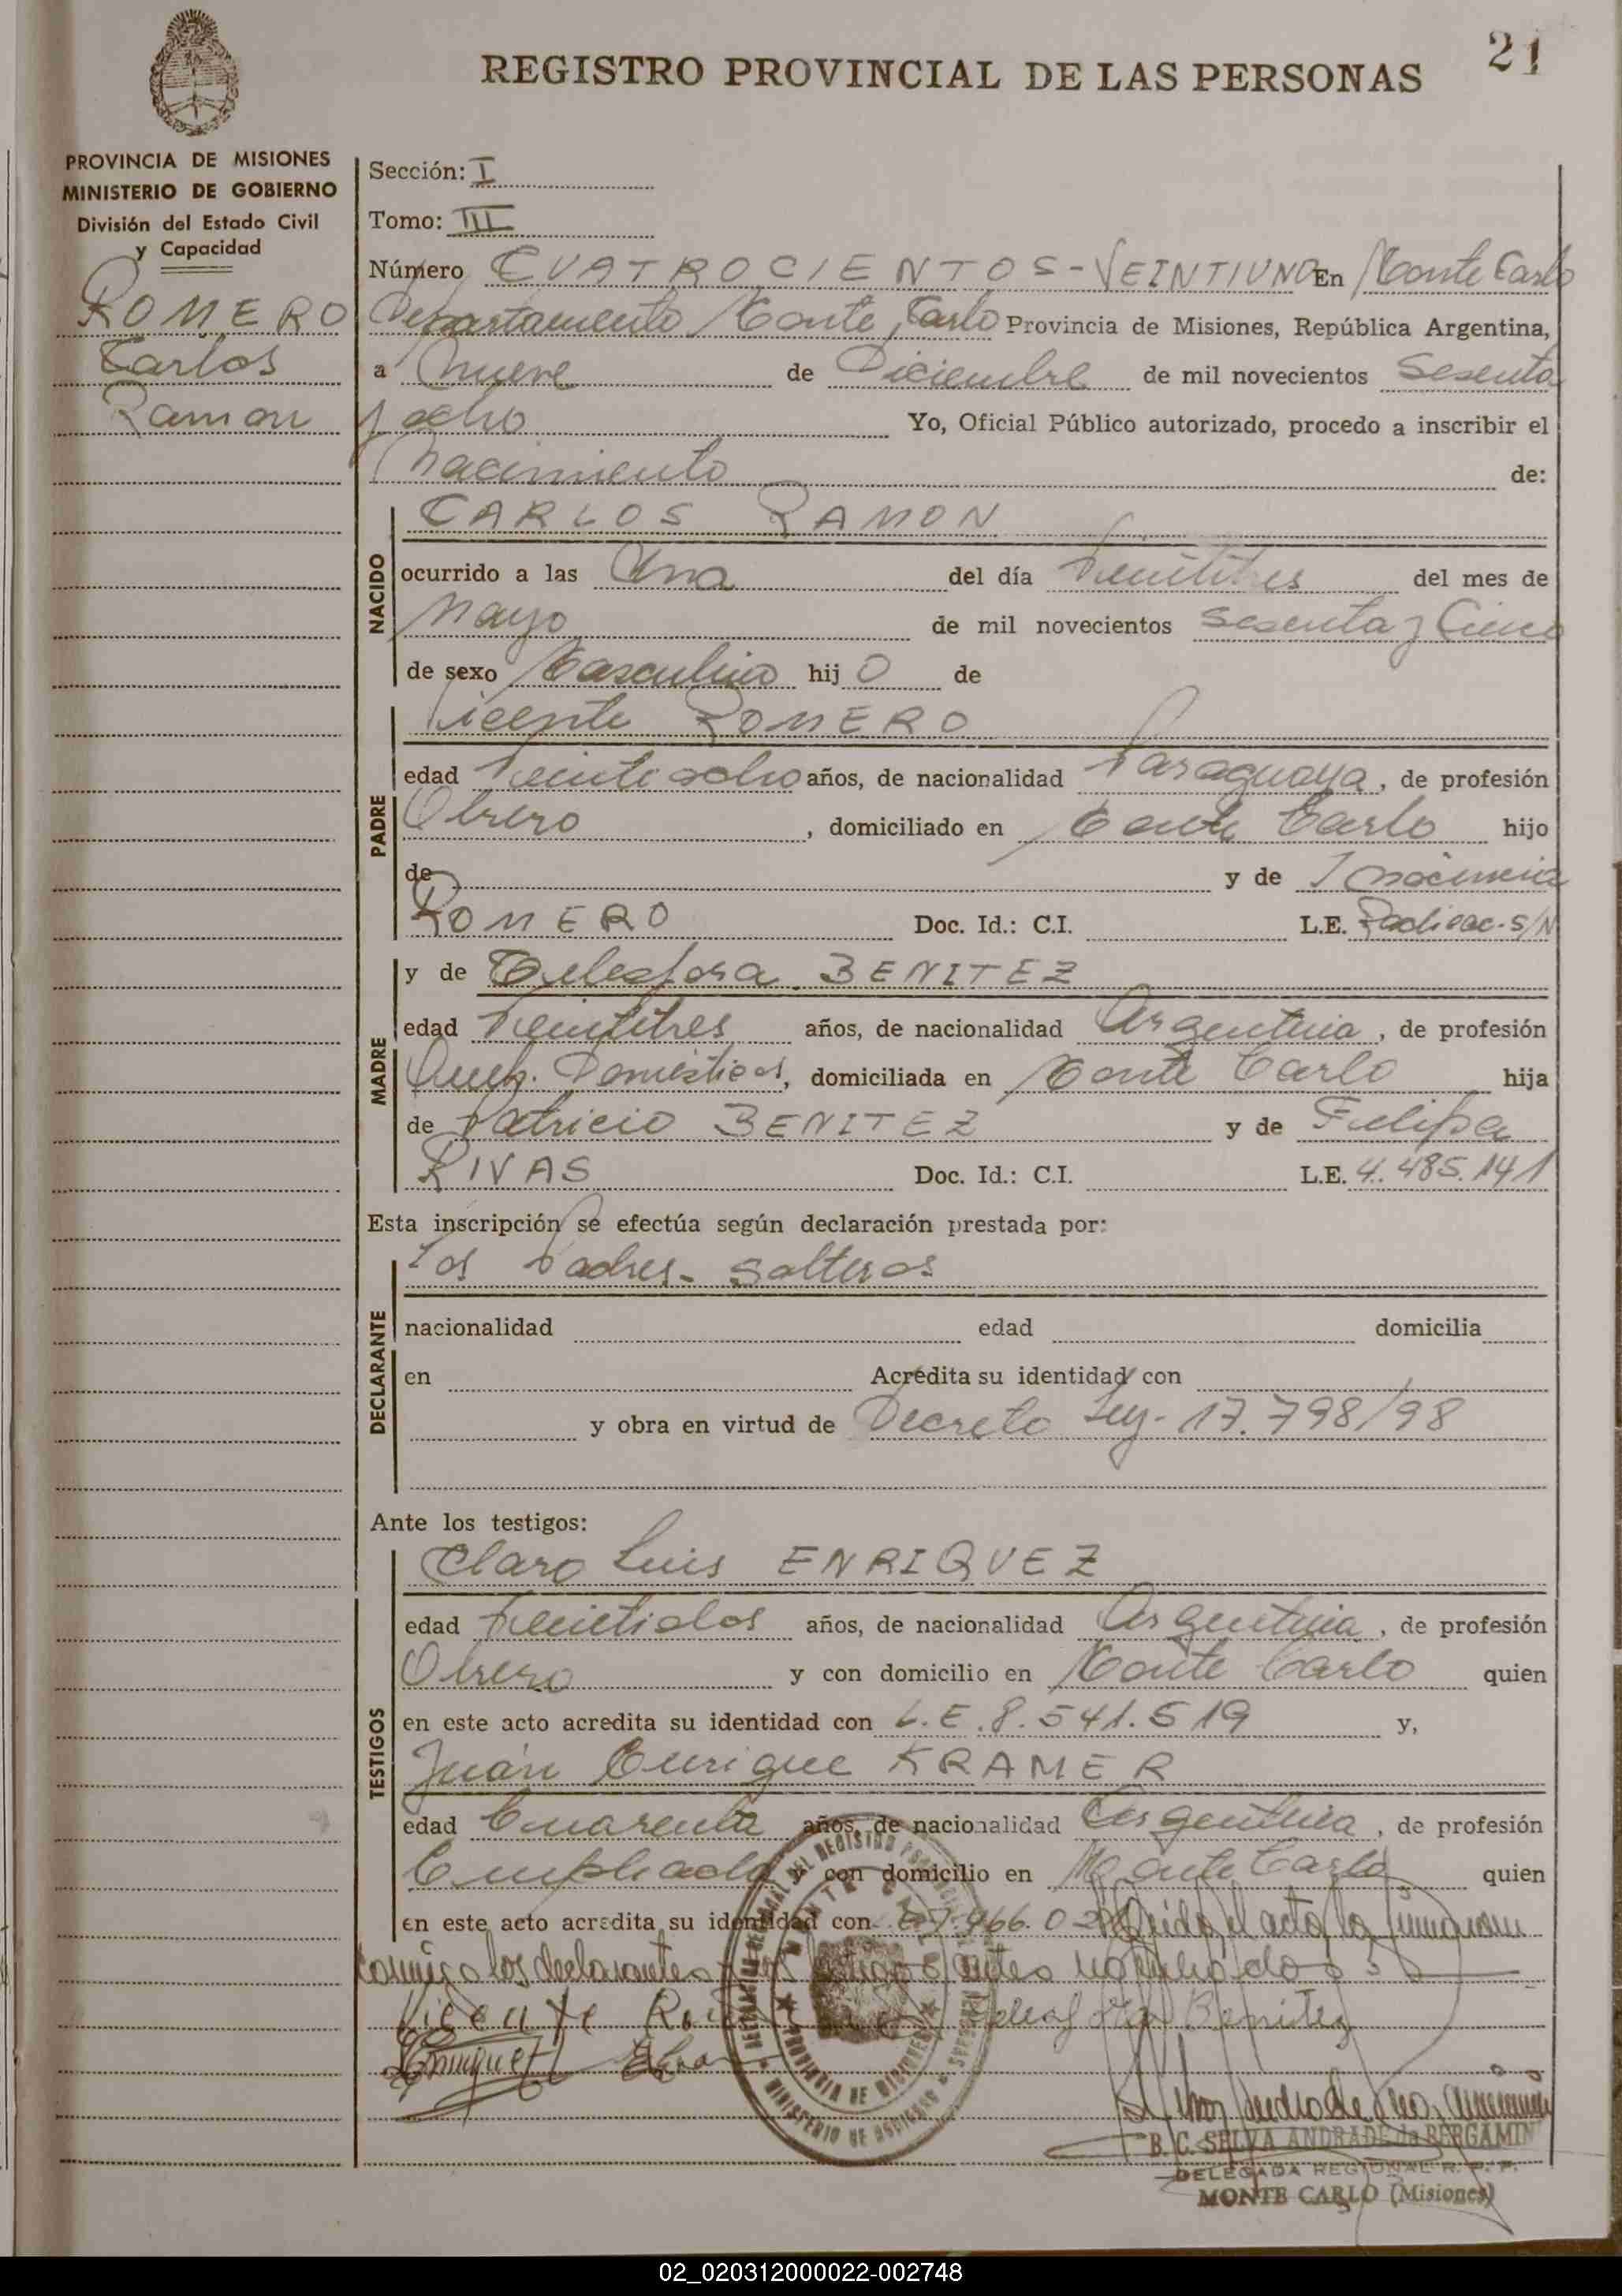 21
REGISTRO PROVINCIAL DE LAS PERSONAS
PROVINCIA DE MISIONES
MINISTERIO DE GOBIERNO
División del Estado Civil
y Capacidad
ROMERO
Carlos
Ramon
Sección: I
Tomo: III
Número CUATROCIENTOS-VEINTIUNO En Monte Carlo
Departamento Monte Carlo Provincia de Misiones, República Argentina,
a nueve de Diciembre de mil novecientos Sesenta
y ocho Yo, Oficial Público autorizado, procedo a inscribir el
nacimiento de:
NACIDO
CARLOS RAMON
ocurrido a las Una del día Veintitres del mes de
Mayo de mil novecientos sesenta y Cinco
de sexo Masculino hij o de
PADRE
Vicente ROMERO
edad Veintiocho años, de nacionalidad Paraguaya, de profesión
Obrero, domiciliado en Monte Carlo hijo
de y de
ROMERO Doc. Id.: C.I. L.E. Radicac. S/N
MADRE
y de Telesfora BENITEZ
edad Veintitres años, de nacionalidad Argentina, de profesión
Queh. Domésticos, domiciliada en Monte Carlo hija
de Patricio BENITEZ y de Felipa
RIVAS Doc. Id.: C.I. L.E. 4.485.141
Esta inscripción se efectúa según declaración prestada por:
DECLARANTE
Los Padres- Solteros
nacionalidad edad domicilia
en Acredita su identidad con
y obra en virtud de Decreto Ley- 17.798/98
Ante los testigos:
TESTIGOS
Claro Luis ENRIQUEZ
edad Veintidos años, de nacionalidad Argentina, de profesión
Obrero y con domicilio en Monte Carlo quien
en este acto acredita su identidad con L.E. 8.541.519 y,
Juan Enrique KRAMER
edad Cuarenta años, de nacionalidad Argentina, de profesión
Empleado y con domicilio en Monte Carlo quien
en este acto acredita su identidad con Leida el acta la firmaron
conmigo los declarantes antes
Vicente Benitez
Enriquez
B. C. SELVA ANDRADE de BERGAMIN
DELEGADA REGIONAL R. P. P.
MONTE CARLO (Misiones)
PROVINCIA DE MISIONES
MINISTERIO DE GOBIERNO
02_020312000022-002748